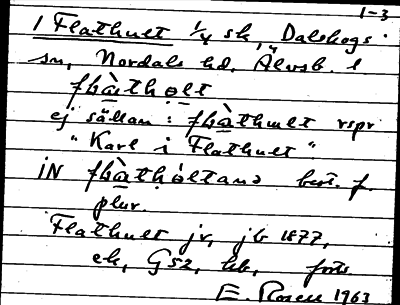 1-3
1 Flathult 1/4 sk, Dalskogs
sn, Nordals hd, Älvsb. l
flàthọlt
ej sällan: flàthult rspr
"Karl i Flathult"
iN flàthòltana best. f.
plur.
Flathult jr, jb 1877,
ek, G52, hb, forts
E. Rosell 1963